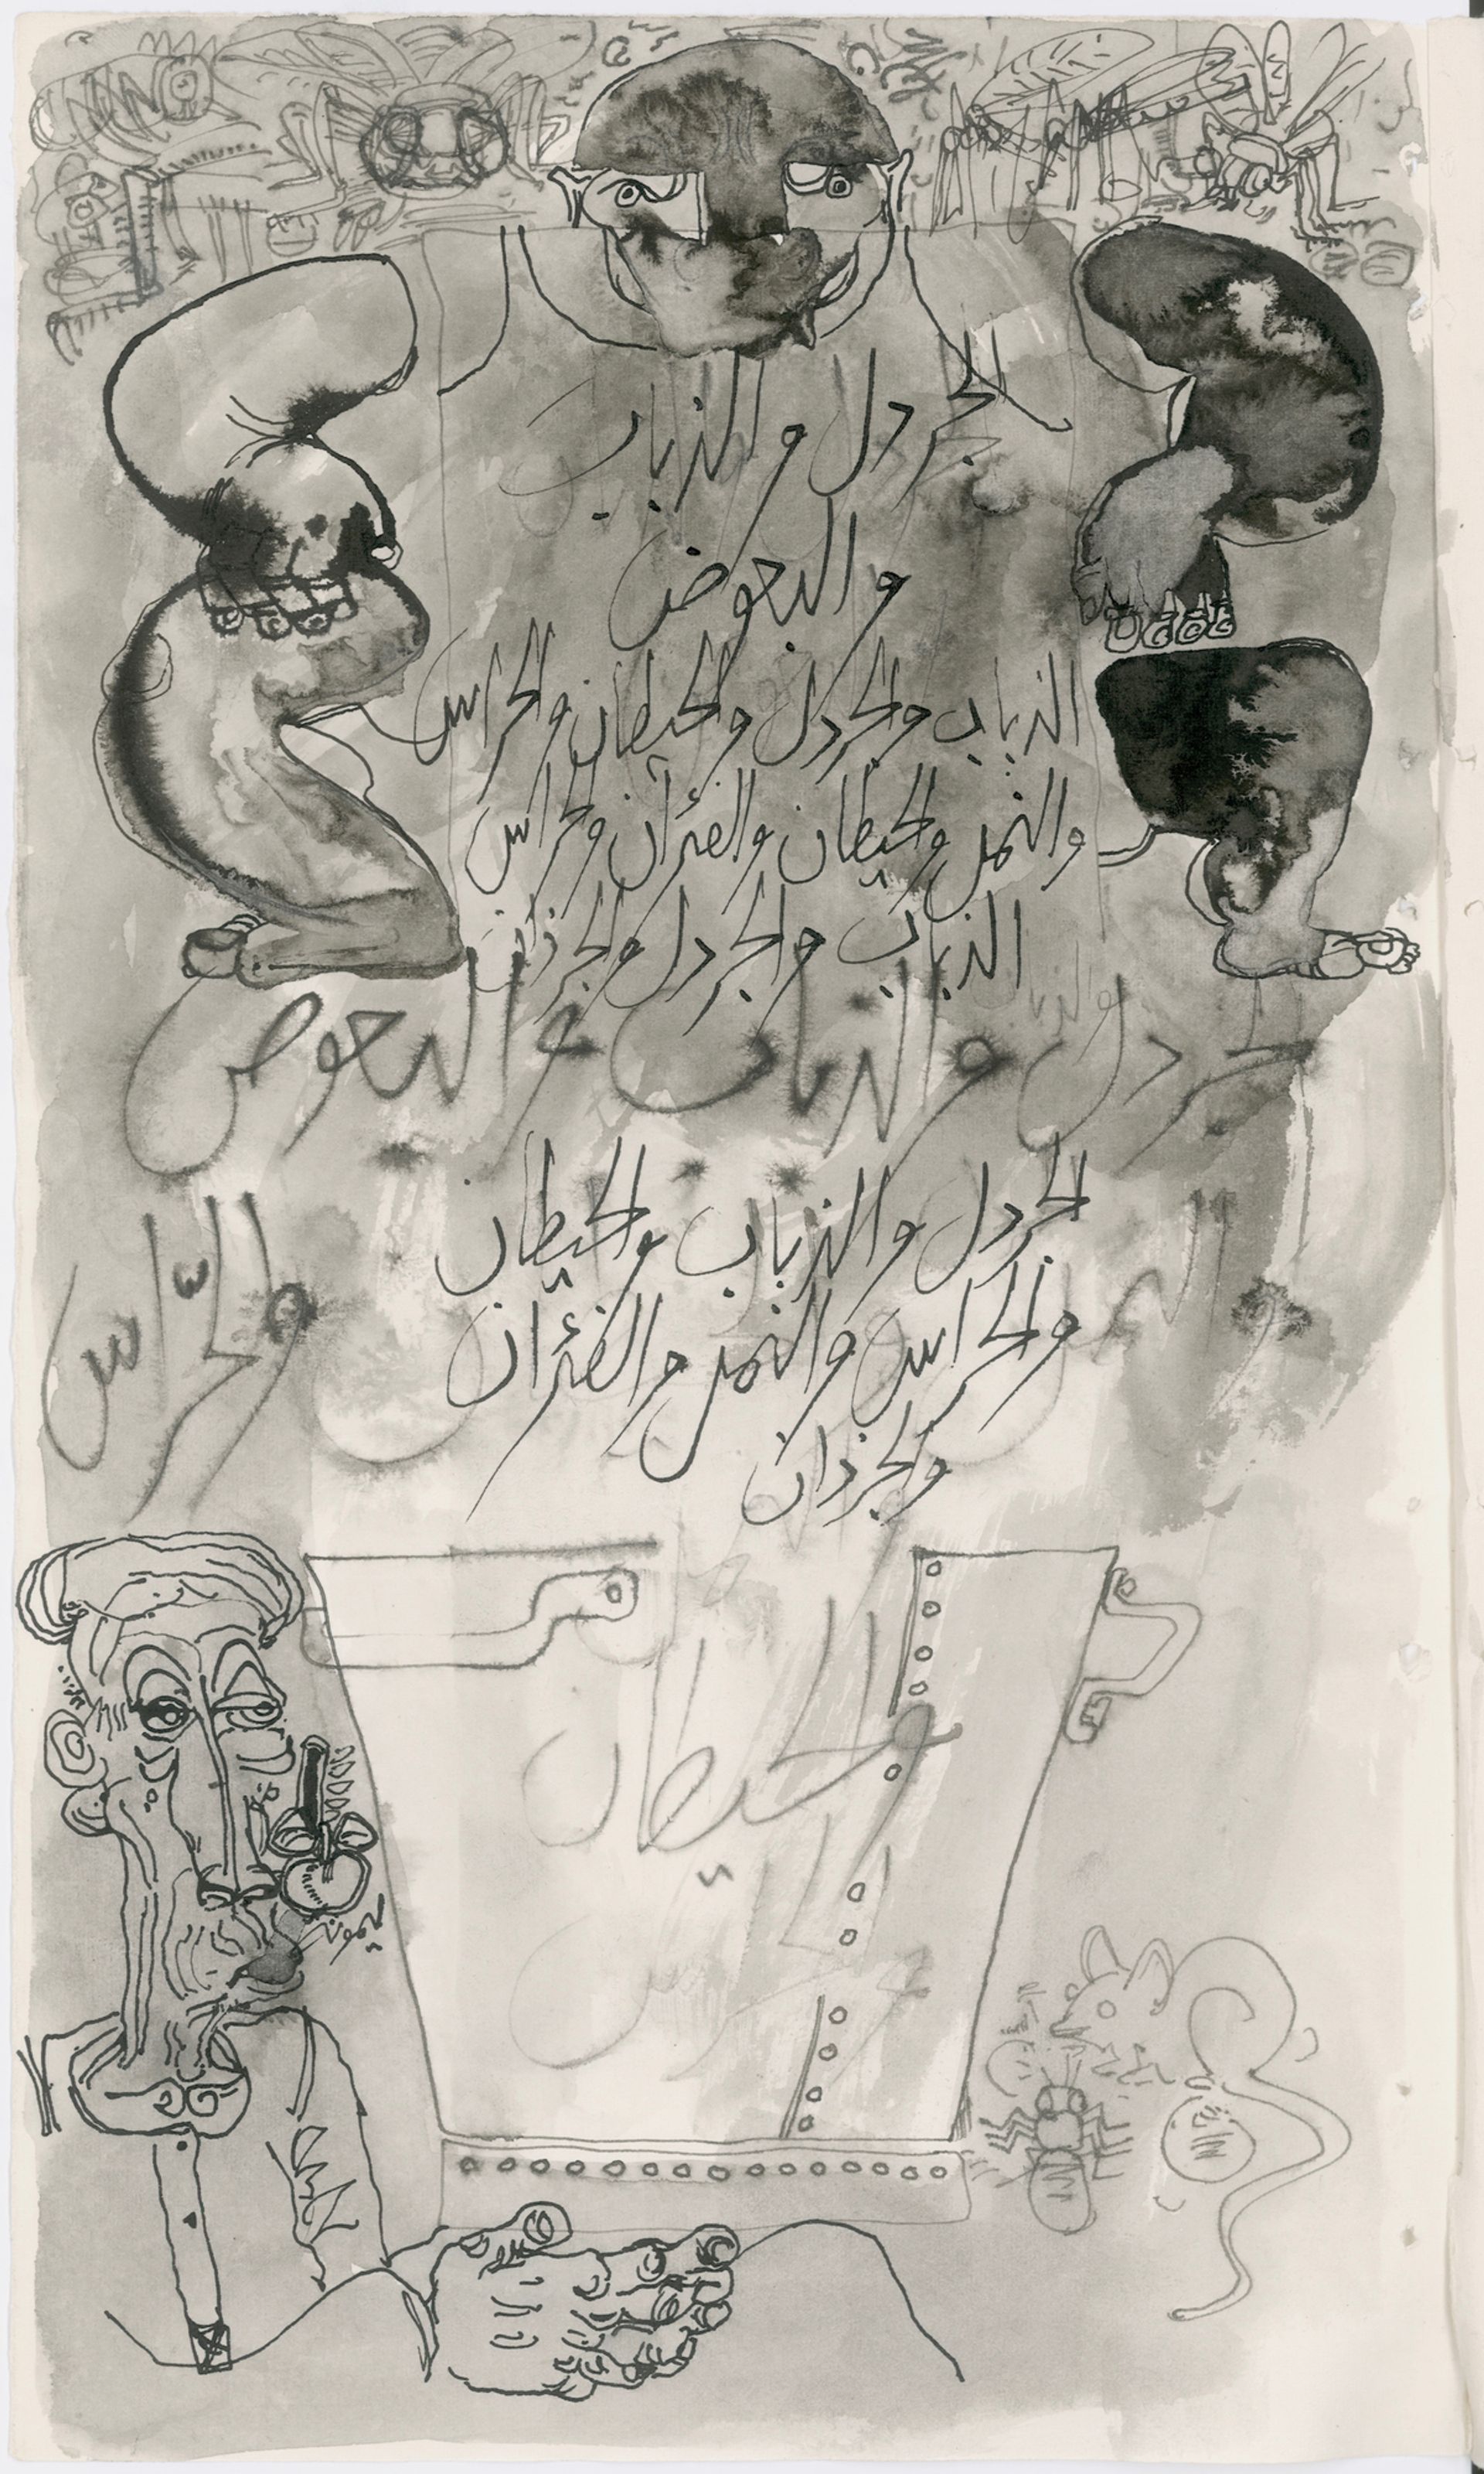 الجردل والذباب
والبعوض
الذباب والجردل والحيطان والحراس
والنمل والحيطان والفئران والحراس
الذباب والجردل والجرذان
الجردل والذباب والبعوض
والحراس
الجردل والذباب والحيطان
والحراس والنمل والفئران
والجرذان
والحيطان
ليمونة